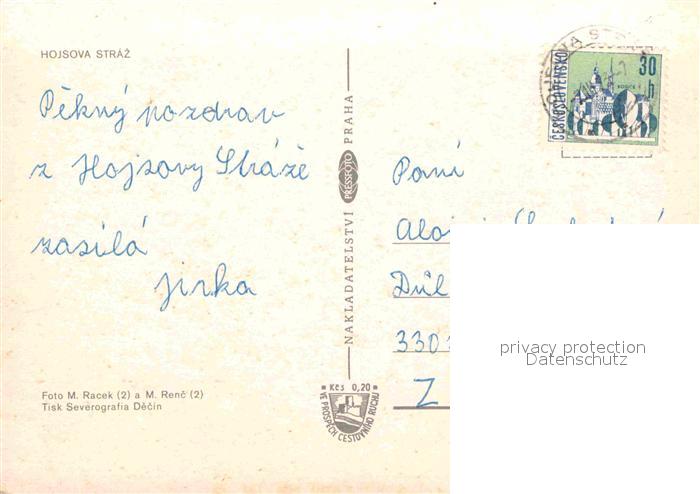 HOJSOVA STRÁŽ
Pěkný pozdrav
z Hojsovy Stráže
zasílá
Jirka
Foto M. Racek (2) a M. Renč (2)
Tisk Severografia Děčín
NAKLADATELSTVÍ PRESSFOTO PRAHA
Kčs 0,20
VE PROSPĚCH CESTOVNÍHO RUCHU
ČESKOSLOVENSKO
30 h
Paní
Důl
330
Z
privacy protection
Datenschutz